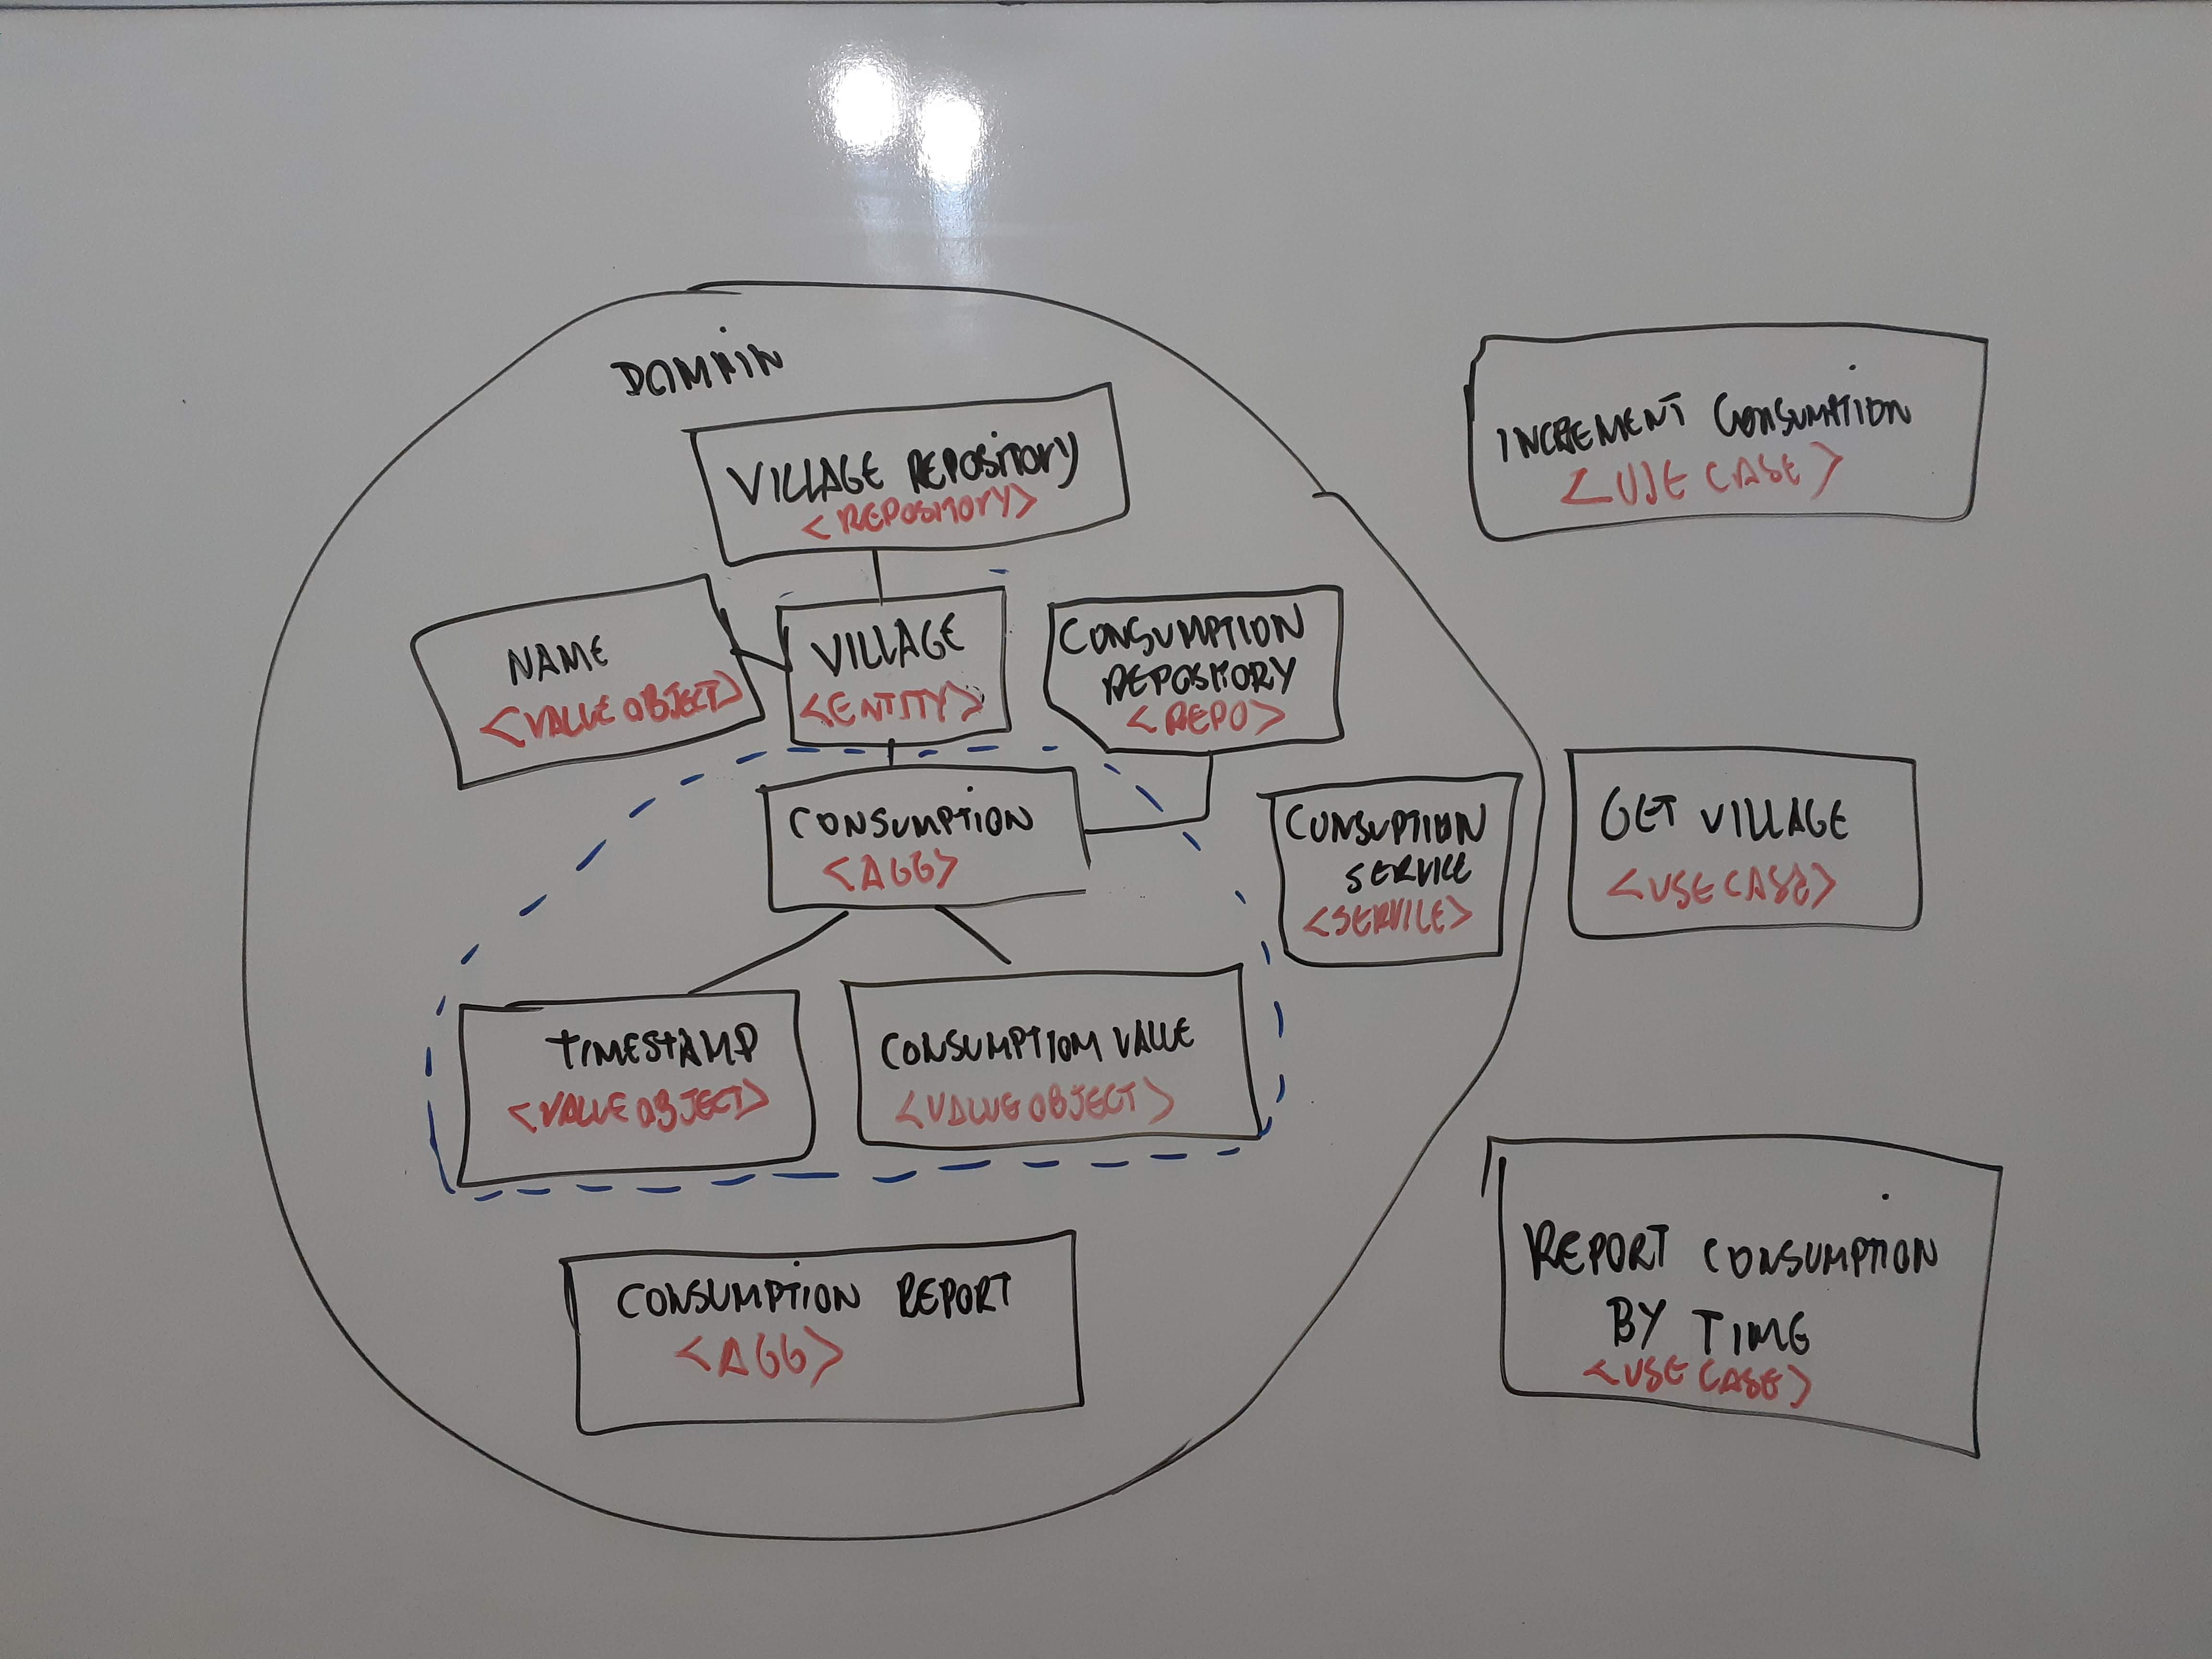 DOMAIN
VILLAGE REPOSITORY
<REPOSITORY>
NAME
<VALUE OBJECT>
VILLAGE
<ENTITY>
CONSUMPTION
REPOSITORY
<REPO>
CONSUMPTION
<AGG>
CONSUPTION
SERVICE
<SERVICE>
TIMESTAMP
<VALUE OBJECT>
CONSUMPTION VALUE
<VALUE OBJECT>
CONSUMPTION REPORT
<AGG>
INCREMENT CONSUMPTION
<USE CASE>
GET VILLAGE
<USE CASE>
REPORT CONSUMPTION
BY TIME
<USE CASE>